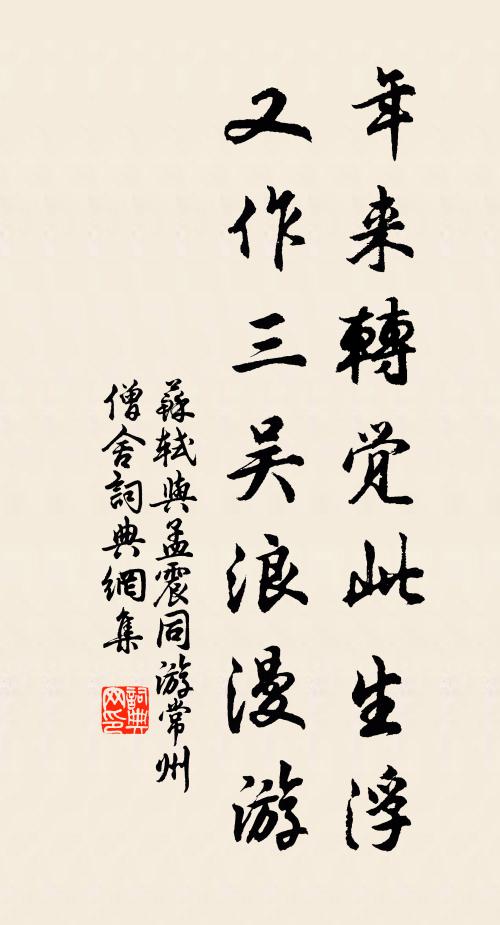 年来轉觉此生浮
又作三吴浪漫游
蘇軾與孟震同游常州
僧舍詞典網集
詞典网印